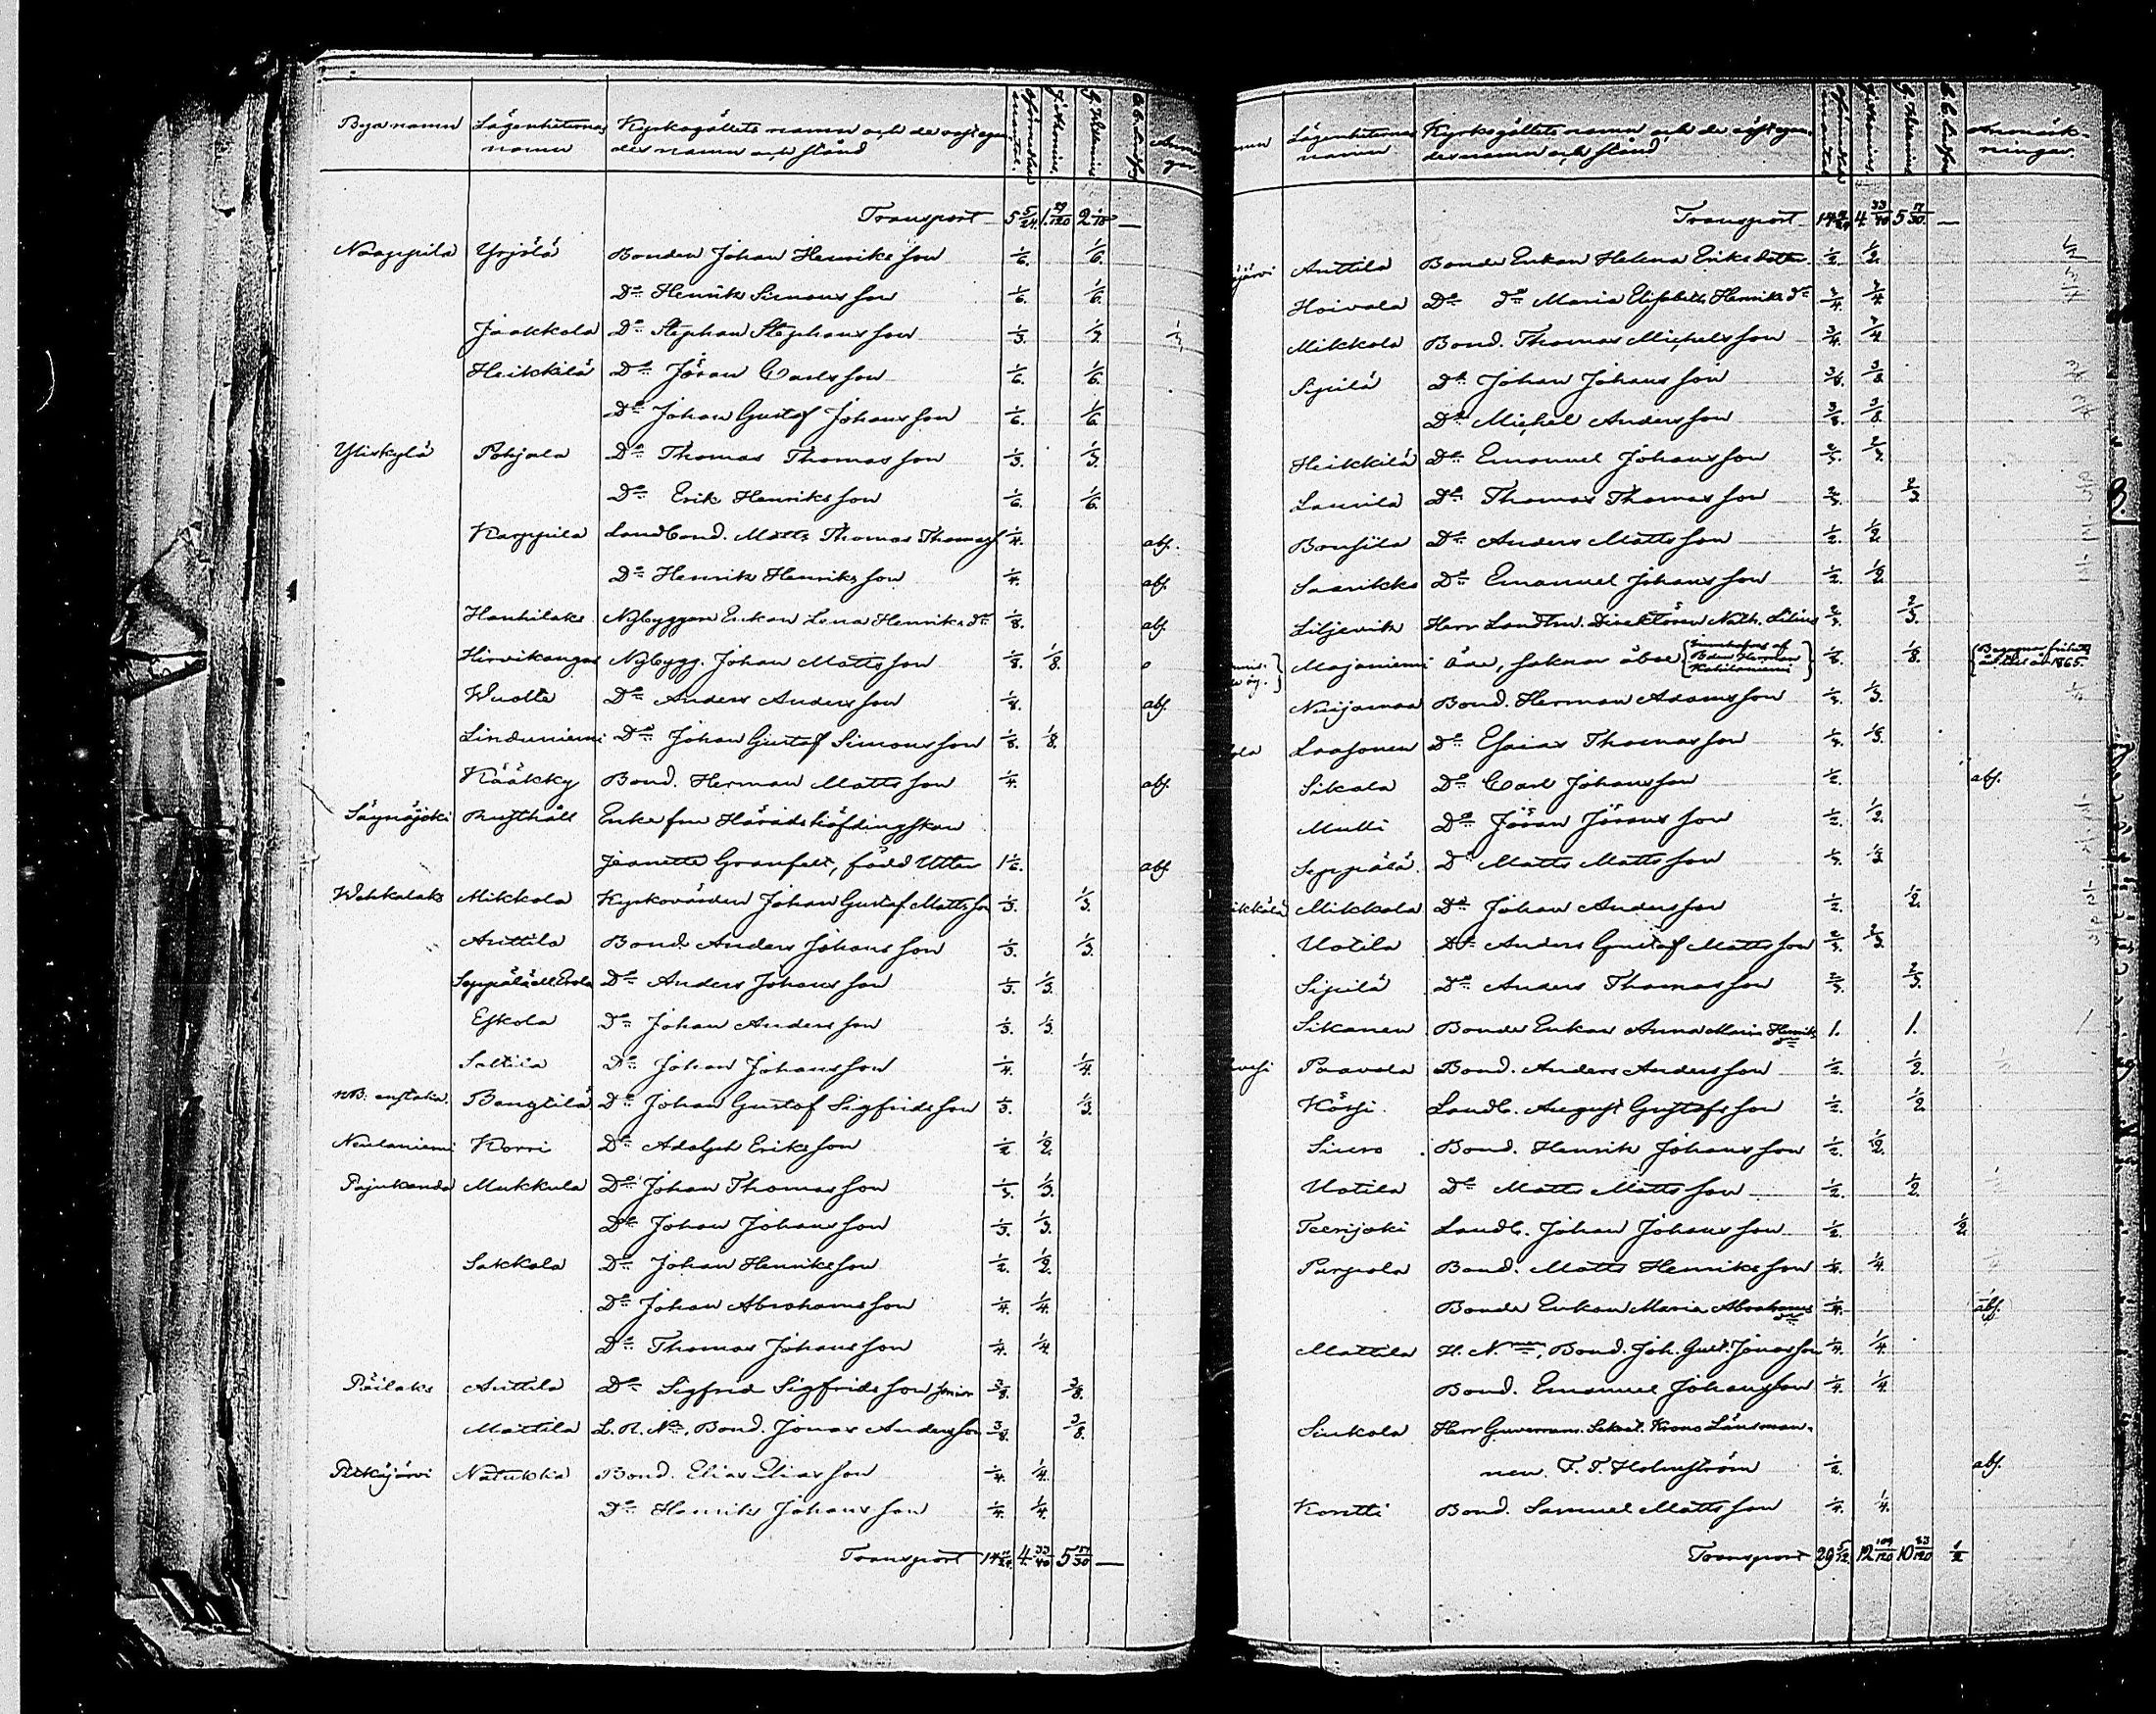 Byanamn Lägenheternas namn Kyrkogällets namn och de röstegandes namn och stånd
Transport 5 5/24. 1. 29/120 2 1/10 —
Naappila Yrjölä Bonden Johan Henriksson 1/6. 1/6.
Do Henrik Simonsson 1/6. 1/6.
Jaakkola Do Stephan Stephansson 1/3. 1/3.
Heikkilä Do Jöran Carlsson 1/6. 1/6.
Do Johan Gustaf Johansson 1/6. 1/6.
Yliskylä Pohjala Do Thomas Thomasson 1/3. 1/3.
Do Erik Henriksson 1/6. 1/6.
Karppila Landbond. Matts Thomas Thomass 1/4. abs.
Do Henrik Henriksson 1/4. abs.
Hauhilaks Nybyggare Enkan Lena Henriksdr 1/8. abs.
Hirvikangas Nybygg. Johan Mattsson 1/8. 1/8.
Wuolle Do Anders Andersson 1/8. abs.
Linduniemi Do Johan Gustaf Simonsson 1/8. 1/8.
Kääkky Bond. Herman Mattsson 1/4. abs.
Säynäjoki Rusthåll Enkefru Häradshöfdingskan
Jeanette Granfelt, född Utter 1 1/6. abs.
Wehkalaks Mikkola Kyrkovärden Johan Gustaf Mattsson 1/3. 1/3.
Anttila Bond. Anders Johansson 1/3. 1/3.
Seppälä ell. Erola Do Anders Johansson 1/3. 1/3.
Eskola Do Johan Andersson 1/3. 1/3.
Saltiia Do Johan Johansson 1/4. 1/4.
Bengtilä Do Johan Gustaf Sigfridsson 1/3. 1/3.
Neulaniemi Korri Do Adolph Eriksson 1/2 1/2.
Pajukanda Mukkula Do Johan Thomasson 1/3. 1/3.
Do Johan Johansson 1/3. 1/3.
Sakkola Do Johan Henriksson 1/2. 1/2.
Do Johan Abrahamsson 1/4. 1/4.
Do Thomas Johansson 1/4. 1/4.
Päilaks Anttila Do Sigfrid Sigfridsson senior 3/8. 3/8.
Mattila L. R. No, Bond. Jonas Andersson 3/8. 3/8.
Pitkäjärvi Natukka Bond. Elias Eliasson 1/4. 1/4.
Do Henrik Johansson 1/4. 1/4.
Transport 14 11/24. 4. 33/40 5 17/30 —
Lägenheternas namn Kyrkogällets namn och de röstegandes namn och stånd Anmärkningar.
Transport 14 11/24 4. 33/40 5 17/30. —
Anttila Bonde Enkan Helena Eriksdotter 1/2. 1/2.
Hoivala Do do Maria Elisabeth Henriksdr 3/4. 3/4.
Mikkola Bond. Thomas Michelsson 3/4. 3/4
Sipilä Do Johan Johansson 3/8. 3/8
Do Michel Andersson 3/8. 3/8.
Heikkilä Do Emanuel Johansson 2/3. 2/3.
Laurila Do Thomas Thomasson 2/3. 2/3
Bonsila Do Anders Mattsson 1/2. 1/2.
Saarikko Do Emanuel Johansson 1/2. 1/2.
Liljevik Herr Landtm. Direktören Nath. Lilius 2/3. 2/3.
Majaniemi öde, saknar åboe {Innehafves af Bonden Herman} 1/8. 1/8.
Nuijamaa Bond. Herman Adamsson 1/3. 1/3.
Laasonen Do Esaias Thomasson 1/3. 1/3.
Sikala Do Carl Johansson 1/2. abs.
Mulli Do Jöran Jöransson 1/2. 1/2.
Seppälä Do Matts Mattsson 1/3. 1/3
Mikkola Do Johan Andersson 1/2. 1/2.
Uotila Do Anders Gustaf Mattsson 2/3. 2/3.
Sipilä Do Anders Thomasson 2/3. 2/3.
Sikanen Bonde Enkan Anna Maria Henriksdr 1. 1.
Paavola Bond. Anders Andersson 1/2. 1/2.
Kössi Landb. August Gustafsson 1/2. 1/2.
Siuro Bond. Henrik Johansson 1/2. 1/2.
Uotila Do Matts Mattsson 1/2. 1/2.
Teerijoki Landb. Johan Johansson 1/2. 1/2
Purpola Bond. Matts Henriksson 1/4. 1/4.
Bonde Enkan Maria Abrahamsdr 1/4. abs.
Mattila H. N.män, Bond. Joh. Gust. Jonasson 1/4. 1/4.
Bond. Emanuel Johansson 1/4. 1/4.
Siukola Herr Guvernem. Sekret. Krono Länsman-
nen F. F. Holmström 1/2. abs.
Kontti Bond. Samuel Mattsson 1/4. 1/4.
Transport 29 5/12. 12 109/120 10 83/120 1/2